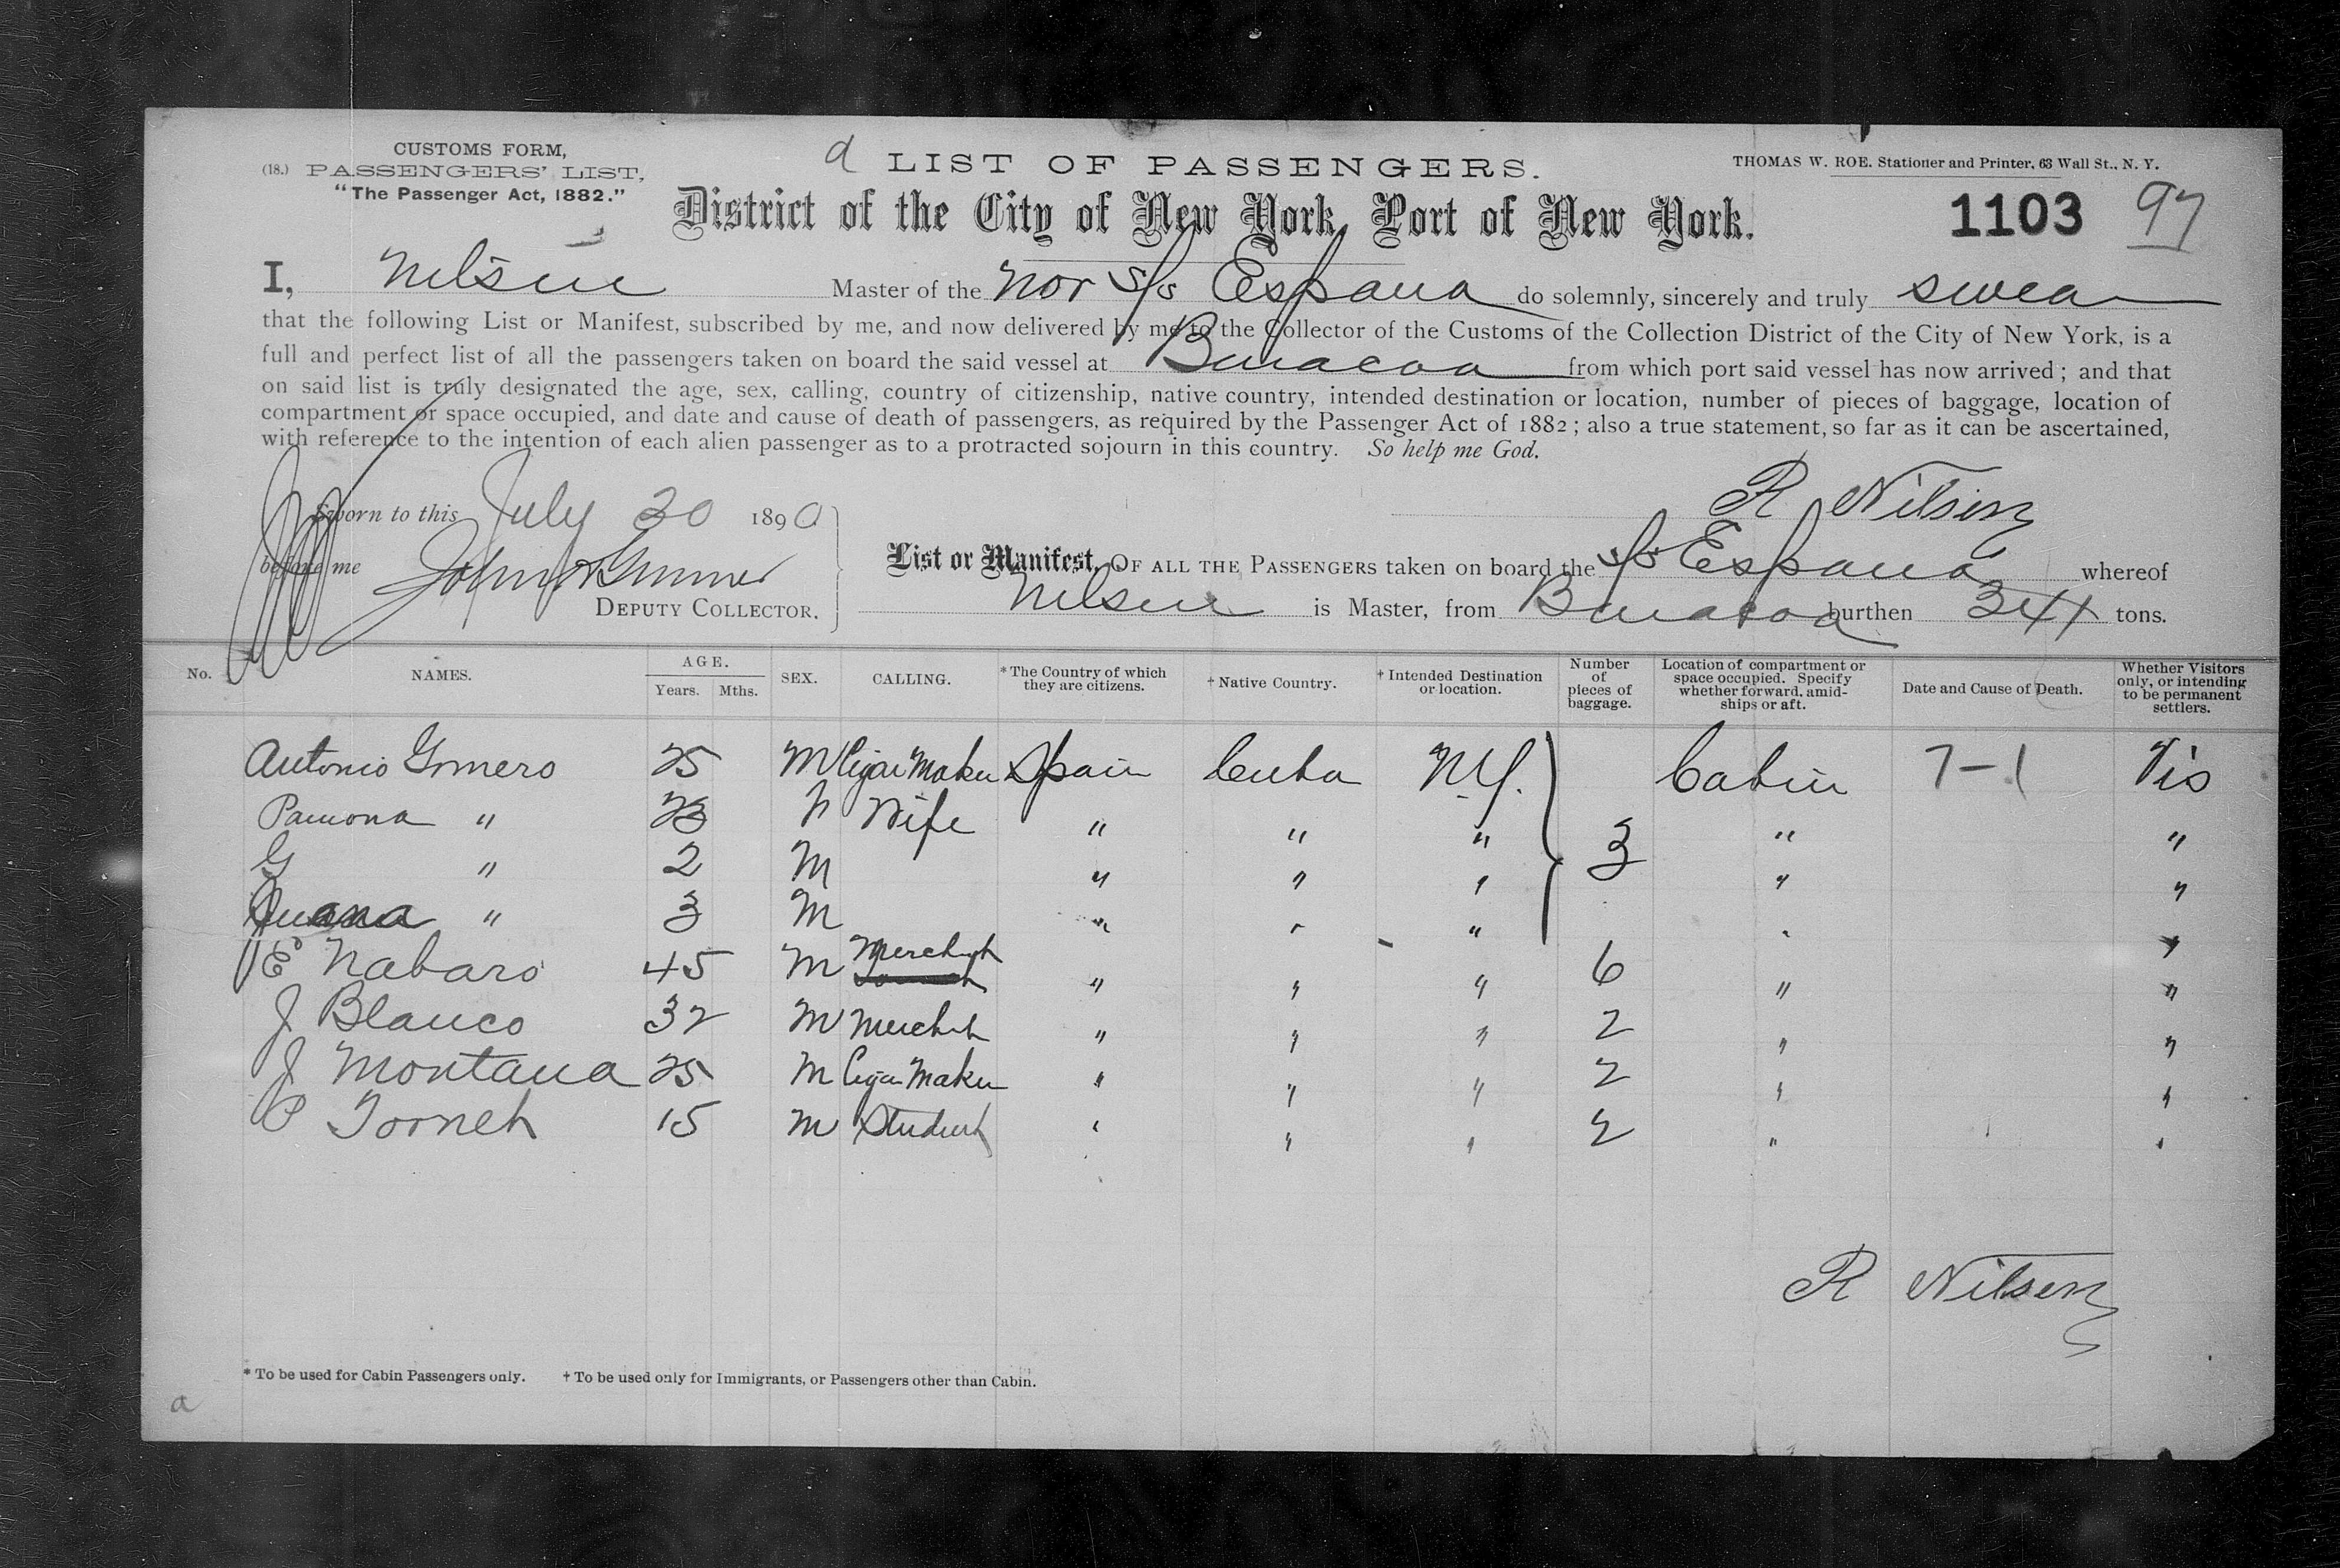 CUSTOMS FORM,
(18.) PASSENGERS' LIST,
"The Passenger Act, 1882."
a LIST OF PASSENGERS.
THOMAS W. ROE. Stationer and Printer, 63 Wall St., N. Y.
District of the City of New York, Port of New York.
1103 97
I, Nelsen Master of the Nor S/S Espana do solemnly, sincerely and truly swear
that the following List or Manifest, subscribed by me, and now delivered by me to the Collector of the Customs of the Collection District of the City of New York, is a
full and perfect list of all the passengers taken on board the said vessel at Baracoa from which port said vessel has now arrived; and that
on said list is truly designated the age, sex, calling, country of citizenship, native country, intended destination or location, number of pieces of baggage, location of
compartment or space occupied, and date and cause of death of passengers, as required by the Passenger Act of 1882; also a true statement, so far as it can be ascertained,
with reference to the intention of each alien passenger as to a protracted sojourn in this country. So help me God.
R Nilsen
Sworn to this July 30 1890
before me John
DEPUTY COLLECTOR.
List or Manifest, OF ALL THE PASSENGERS taken on board the S/S Espana whereof
Nelsen is Master, from Baracoa burthen 341 tons.
No. NAMES. AGE. Years. Mths. SEX. CALLING. *The Country of which they are citizens. †Native Country. †Intended Destination or location. Number of pieces of baggage. Location of compartment or space occupied. Specify whether forward, amid-ships or aft. Date and Cause of Death. Whether Visitors only, or intending to be permanent settlers.
Antonio Gomero 25 M Cigar Maker Spain Cuba N.Y. Cabin 7-1 Vis
Pamona " 23 F Wife " " " 3 " "
G " 2 M " " " " "
" 3 M " " " " "
E Nabaro 45 M Mercht " " " 6 " "
J Blanco 32 M Mercht " " " 2 " "
J Montana 25 M Cigar Maker " " " 2 " "
P Torneh 15 M Student " " " 2 " "
R Nilsen
* To be used for Cabin Passengers only. † To be used only for Immigrants, or Passengers other than Cabin.
a